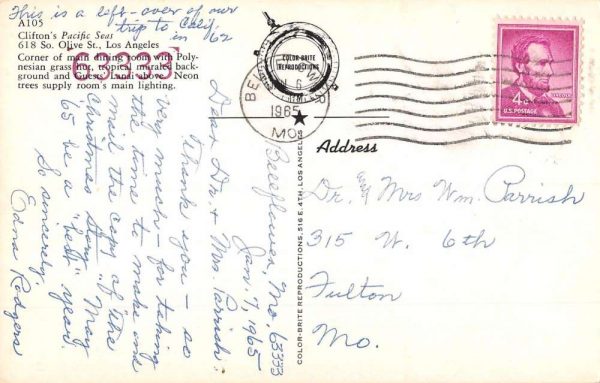 This is a left-over of our
trip to Calif.
in '62
A105
Clifton's Pacific Seas
618 So. Olive St., Los Angeles
Corner of main room with Poly-
nesian grass hut, tropical muraled back-
ground and Guest Lanai above. Neon
trees supply room's main lighting.
63333
COLOR-BRITE
REPRODUCTIONS
1965
MO.
LINCOLN
4¢
U.S. POSTAGE
Bellflower, Mo. 63333
Jan. 7, 1965
Dear Dr. & Mrs. Parrish:
Thank you – so
very much – for taking
the time to make and
mail the copy of the
Christmas Story. May
'65 be a "best" year.
So sincerely,
Edna Rodgers
COLOR-BRITE REPRODUCTIONS, 516 E. 4TH, LOS ANGELES
Address
Dr. and Mrs Wm. Parrish
315 W. 6th
Fulton
Mo.